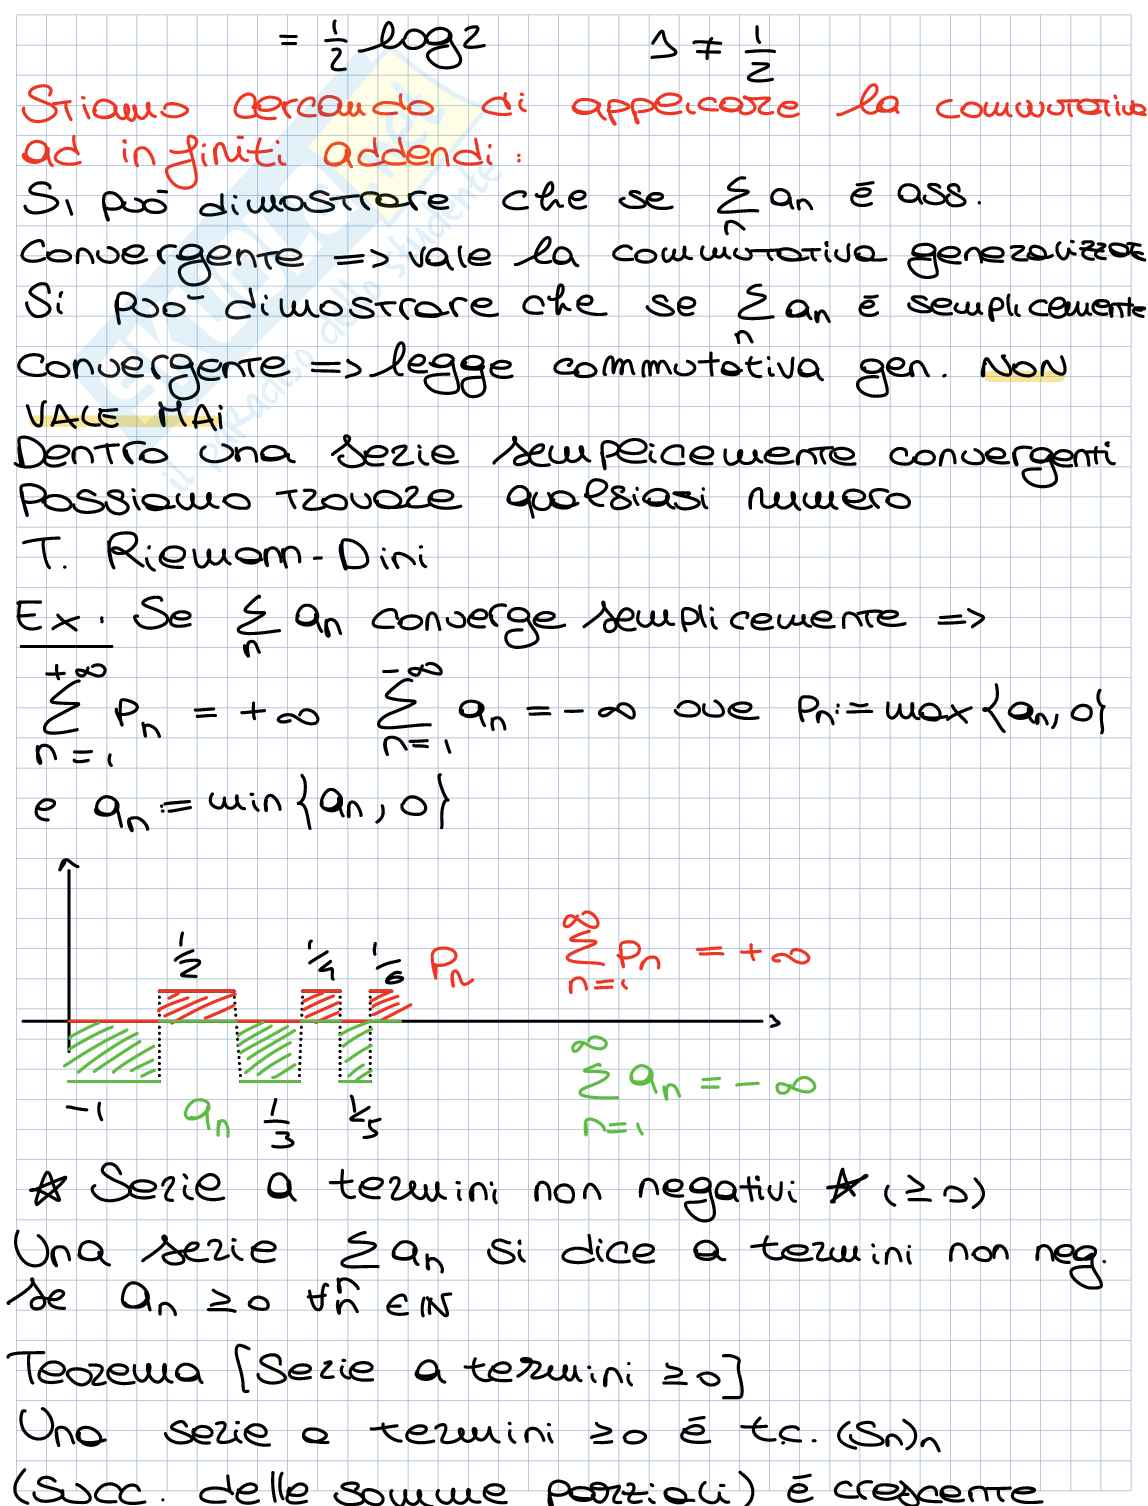 = 1/2 log2     1 ≠ 1/2
Stiamo cercando di applicare la commutativa
ad infiniti addendi:
Si può dimostrare che se Σ_n a_n è ass.
convergente => vale la commutativa generalizzat
Si può dimostrare che se Σ_n a_n è semplicemente
convergente => legge commutativa gen. NON
VALE MAI
Dentro una serie semplicemente convergenti
possiamo trovare qualsiasi numero
T. Riemann-Dini
Ex. Se Σ_n a_n converge semplicemente =>
Σ_{n=1}^{+∞} p_n = +∞   Σ_{n=1}^{-∞} q_n = -∞ ove p_n := max{a_n, 0}
e q_n := min{a_n, 0}
1/2   1/4   1/6   p_n   Σ_{n=1}^{∞} p_n = +∞
-1   q_n   1/3   1/5   Σ_{n=1}^{∞} q_n = -∞
☆ Serie a termini non negativi ☆ (≥0)
Una serie Σ_n a_n si dice a termini non neg.
se a_n ≥0 ∀n ∈ℕ
Teorema [Serie a termini ≥0]
Una serie a termini ≥0 è t.c. (Sn)n
(succ. delle somme parziali) è crescente
il paradiso dello studente